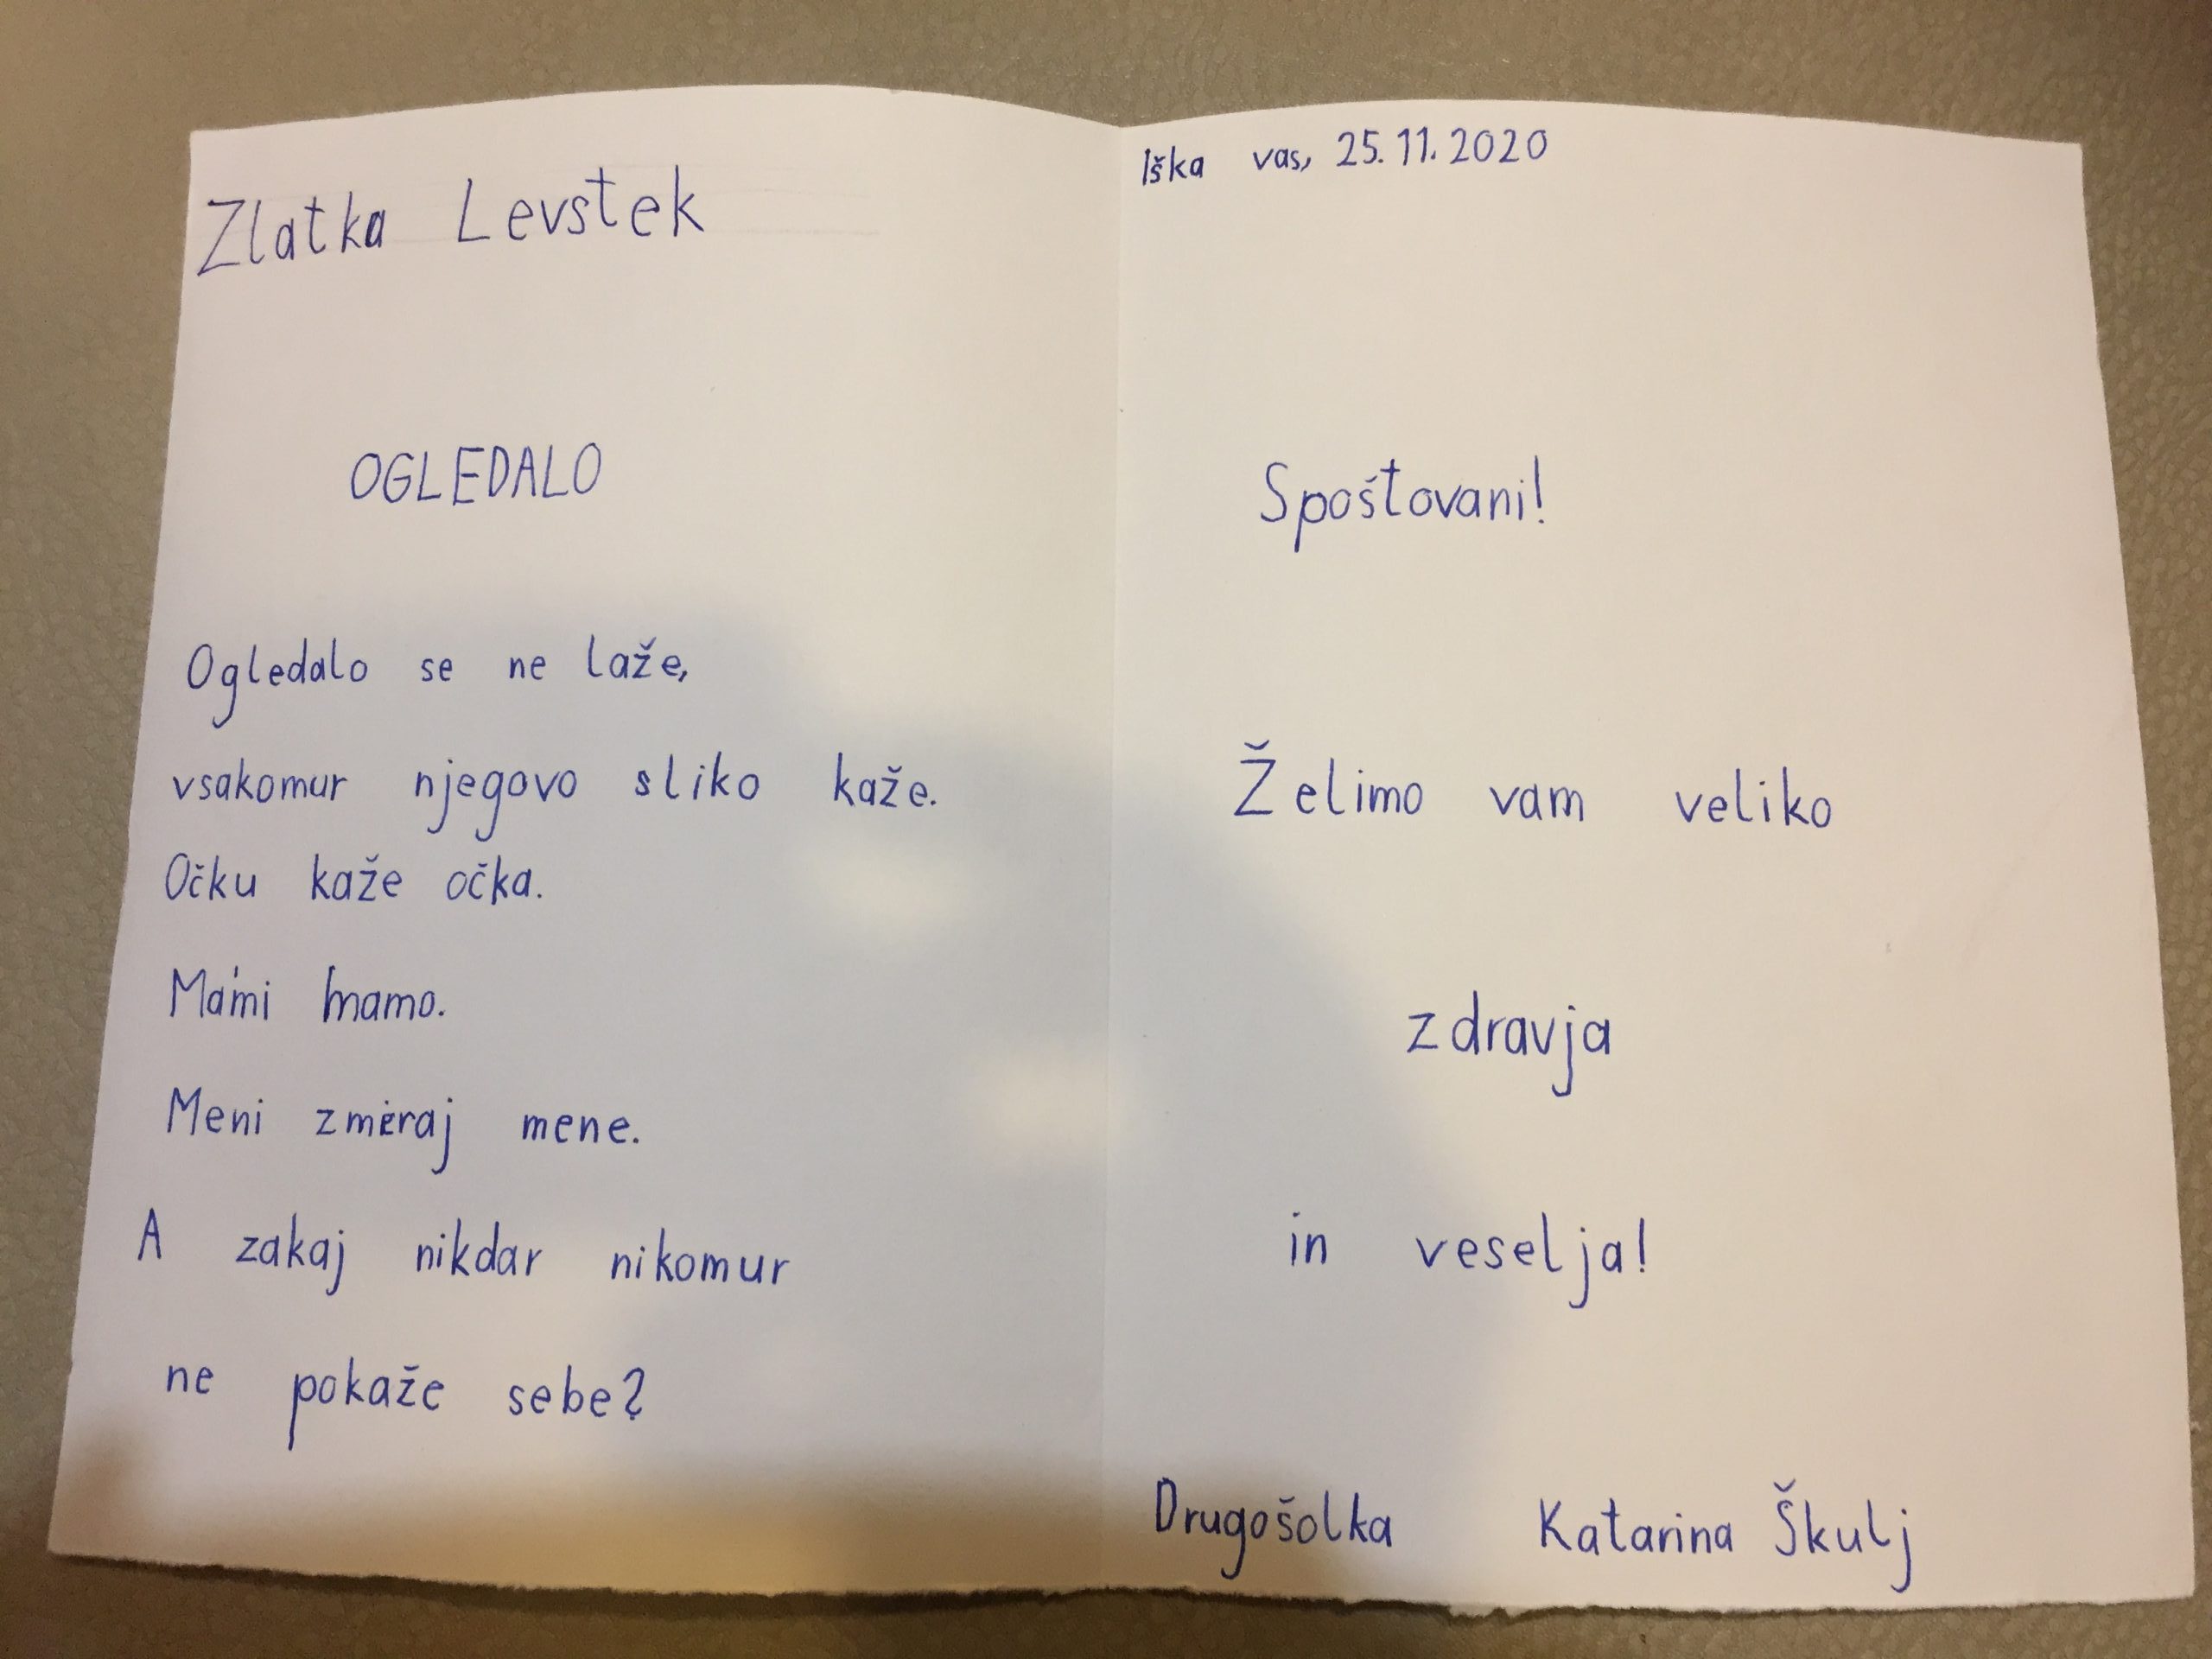 Zlatka Levstek
OGLEDALO
Ogledalo se ne laže,
vsakomur njegovo sliko kaže.
Očku kaže očka.
Mami mamo.
Meni zmeraj mene.
A zakaj nikdar nikomur
ne pokaže sebe?
Iška vas, 25.11.2020
Spoštovani!
Želimo vam veliko
zdravja
in veselja!
Drugošolka Katarina Škulj